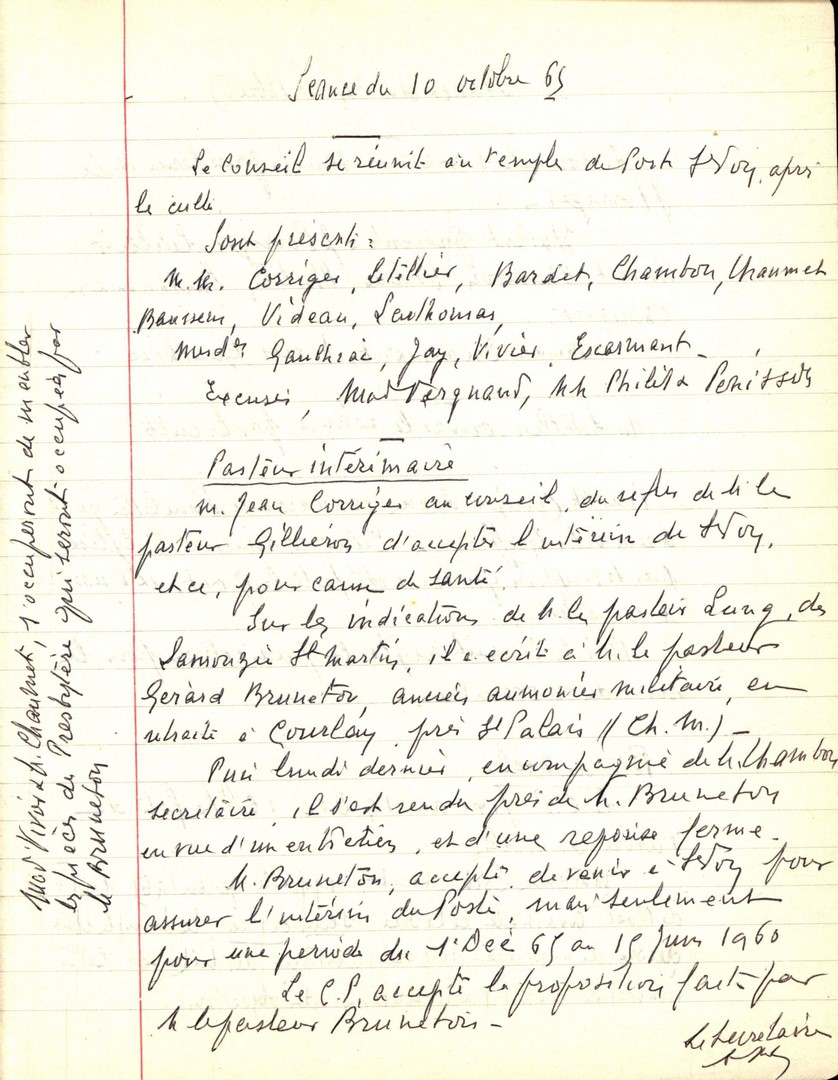 Séance du 10 octobre 65
Le Conseil se réunit au temple de Port Ste Foy, après
le culte
Sont présents :
M.M. Corriger, Letellier, Bardet, Chambon, Chaumet
Videau, Lenthomas,
Mesdes Gauthiac, Jay, Vivier, Escarmant -
Excusés, Mad Vergnaud, MM Philit & Penisson
Pasteur intérimaire
M. Jean Corriger au conseil, du refus de M. le
pasteur Gilliéron d'accepter l'intérim de Ste Foy,
et ce, pour cause de santé.
Sur les indications de M. le pasteur Lung, de
Lamonzie St Martin, il a écrit à M. le pasteur
Gérard Bruneton, ancien aumonier militaire, en
retraite à Courlay, près St Palais (Ch. M.) -
Puis lundi dernier, en compagnie de M. Chambon,
secrétaire, il s'est rendu près de M. Bruneton
en vue d'un entretien, et d'une réponse ferme -
M. Bruneton, accepte de venir à Ste Foy pour
assurer l'intérim du Poste, mais seulement
pour une période du 1er Déc 65 au 15 Juin 1960
Le C.P. accepte la proposition faite par
M le pasteur Bruneton -
Le Secrétaire
Mad Vivier & M. Chaumet, s'occuperont de meubler
les pièces du Presbytère qui seront occupées par
M Bruneton